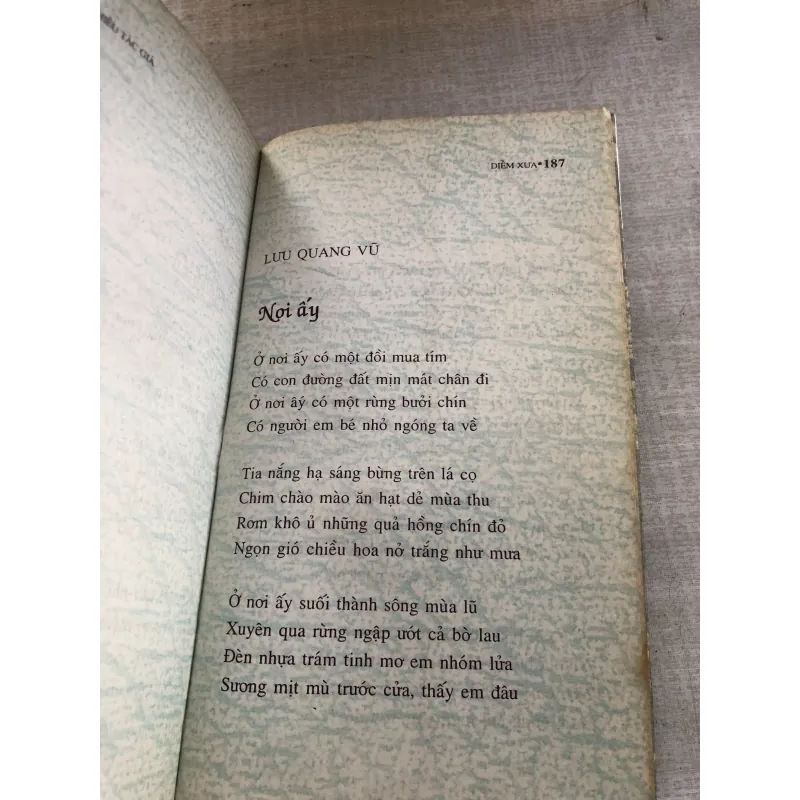 TÁC GIẢ
DIỄM XƯA • 187
LƯU QUANG VŨ
Nơi ấy
Ở nơi ấy có một đồi mua tím
Có con đường đất mịn mát chân đi
Ở nơi âý có một rừng bưởi chín
Có người em bé nhỏ ngóng ta về
Tia nắng hạ sáng bừng trên lá cọ
Chim chào mào ăn hạt dẻ mùa thu
Rơm khô ủ những quả hồng chín đỏ
Ngọn gió chiều hoa nở trắng như mưa
Ở nơi ấy suối thành sông mùa lũ
Xuyên qua rừng ngập ướt cả bờ lau
Đèn nhựa trám tinh mơ em nhóm lửa
Sương mịt mù trước cửa, thấy em đâu